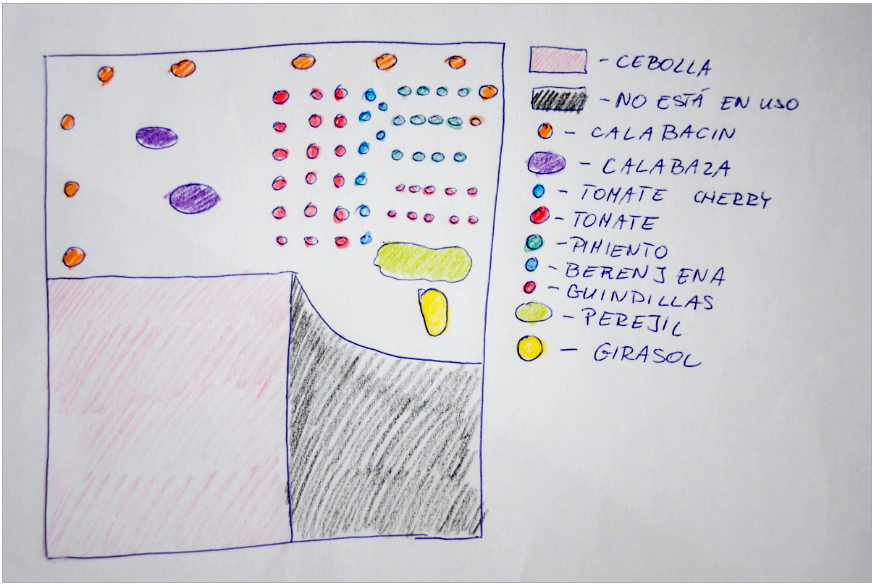 - CEBOLLA
- NO ESTÁ EN USO
- CALABACIN
- CALABAZA
- TOMATE CHERRY
- TOMATE
- PIMIENTO
- BERENJENA
- GUINDILLAS
- PEREJIL
- GIRASOL